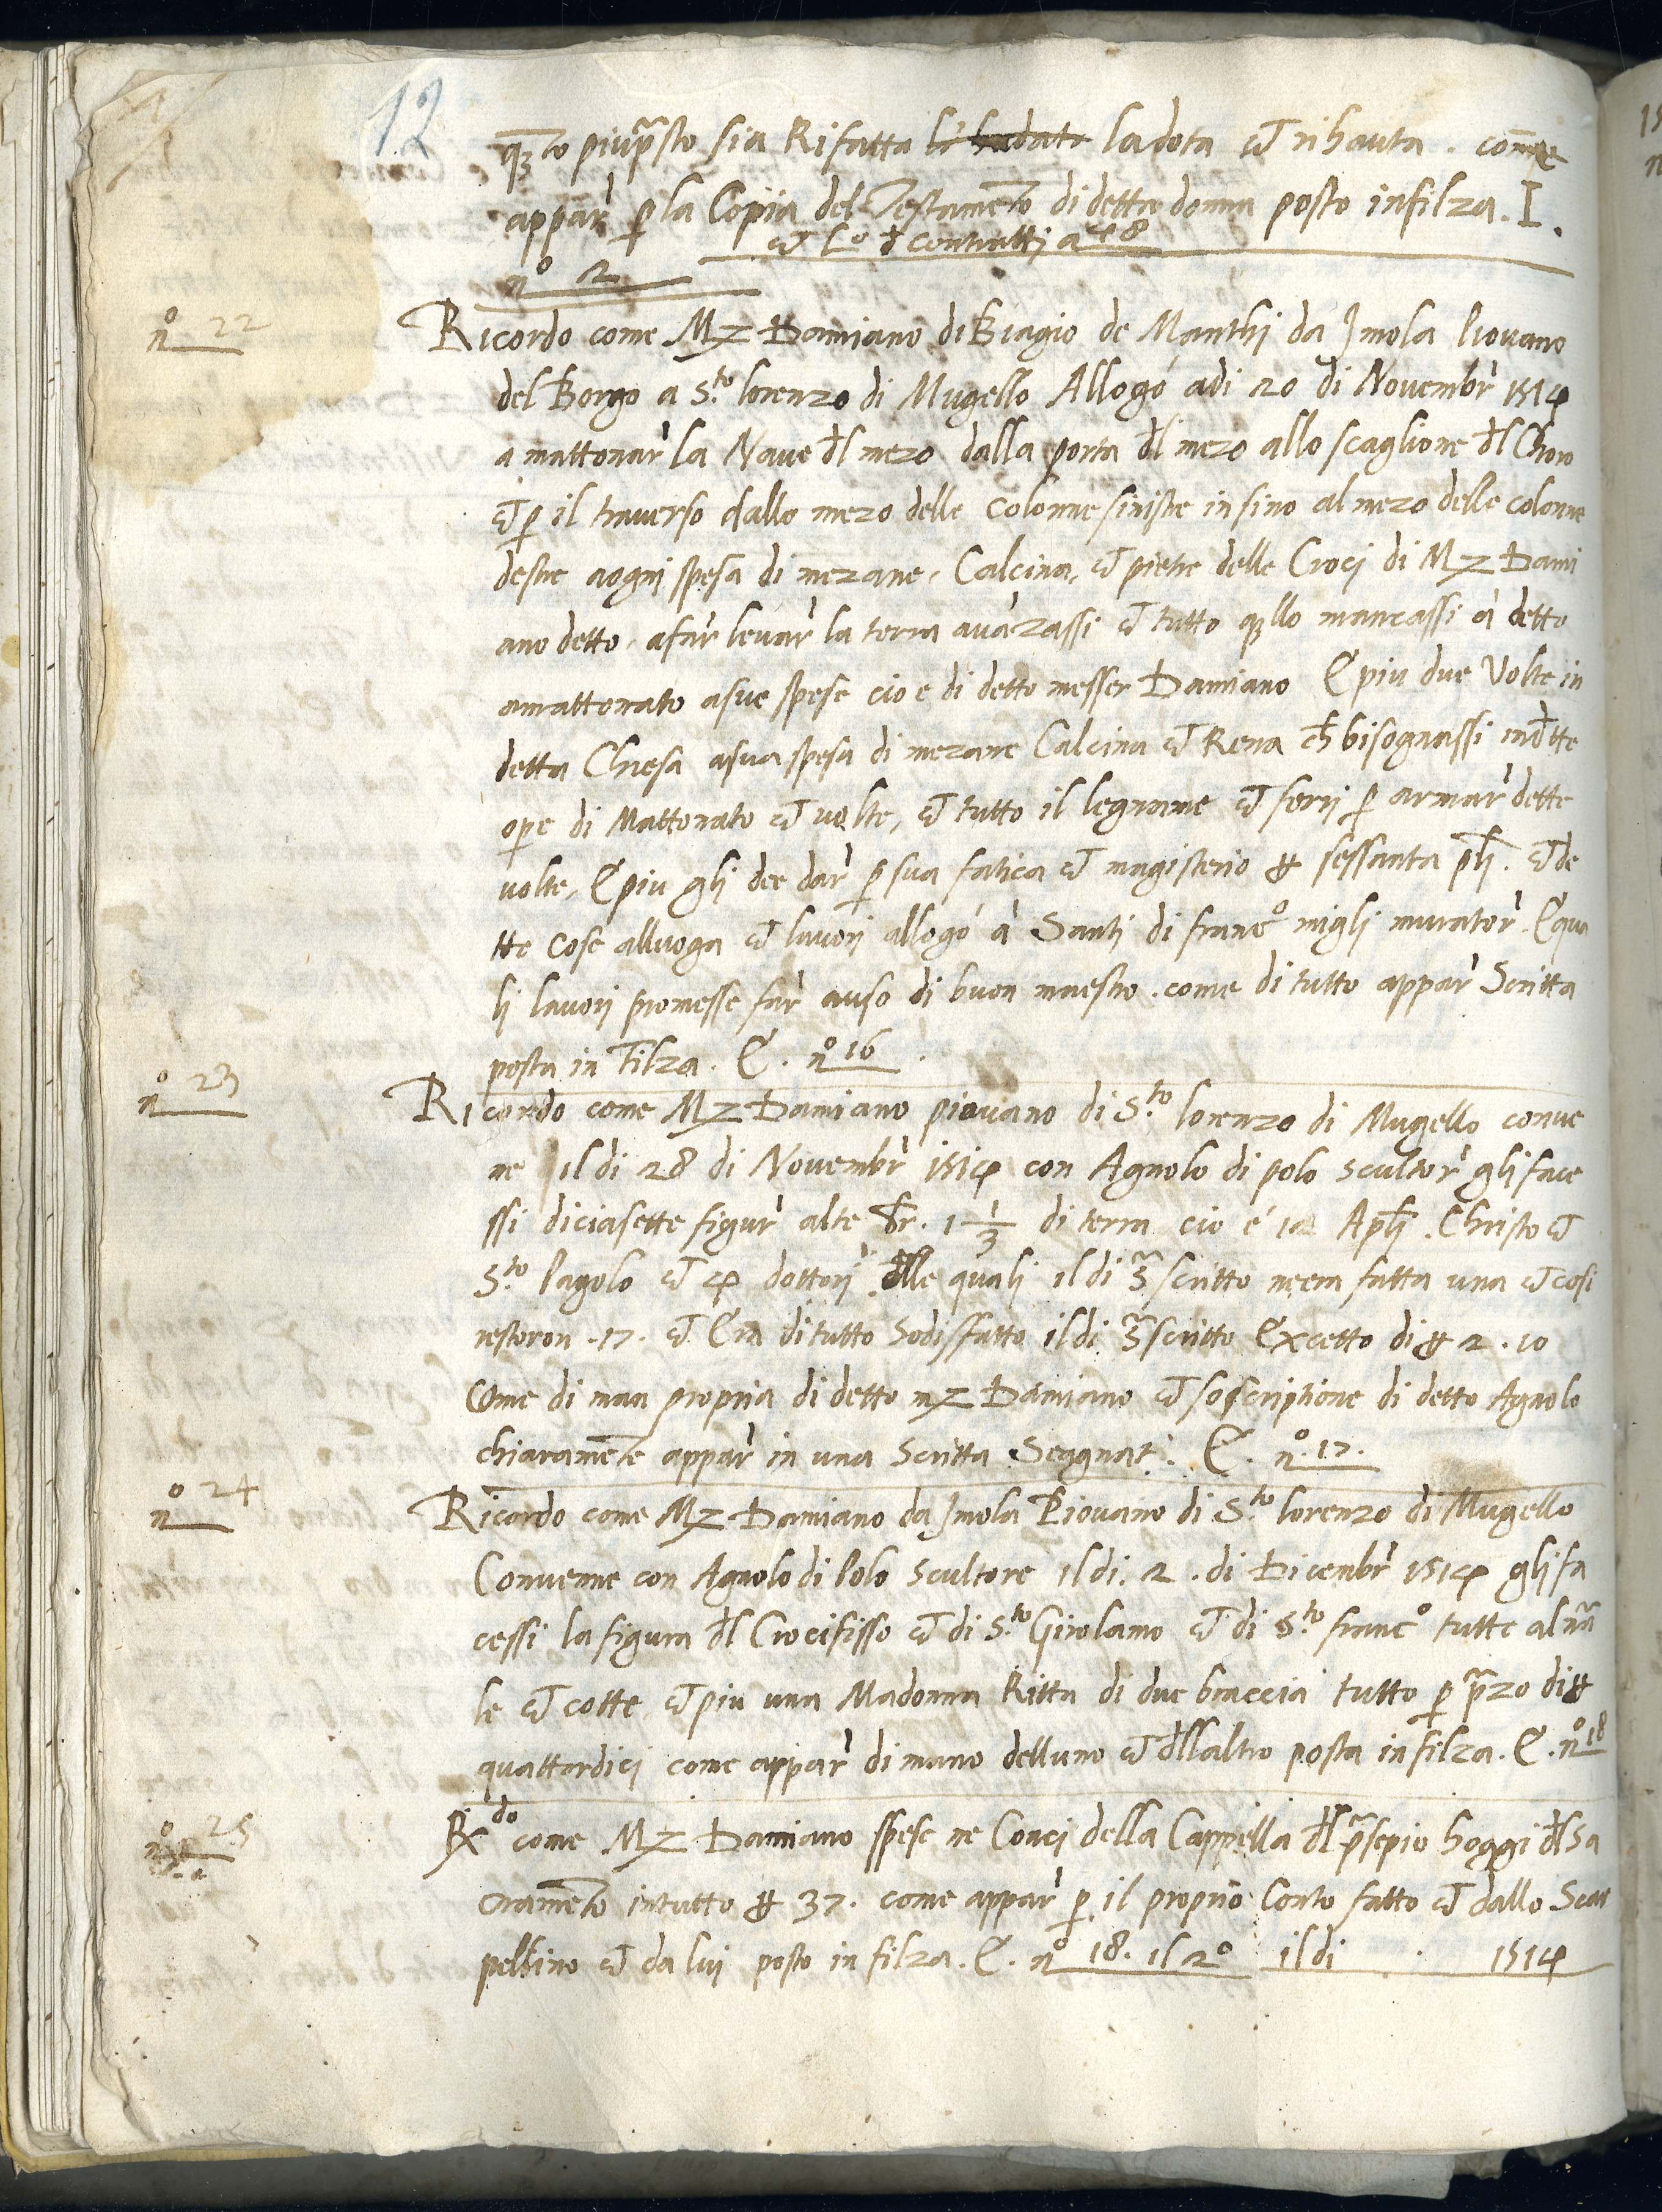 12
q̃to piup̃sto sia Rifatta li hadato la dota & rihauta. come
appar̀ p la Copia del Testam̃to di detta donna posto infilza. I.
& Lo d contratti a 48
no 2
no 22
Ricordo come Mz Damiano di Biagio de Manthj da Jmola Piouano
del Borgo a S.to lorenzo di Mugello Allogó adi 20 di Novembr̀ 1514
a mattonar̀ la Naue dl mezo dalla porta dl mezo allo scaglione dl Choro
& p il trauerso dallo mezo delle colonne sinistre in sino al mezo delle colonne
destre aognj spesa di mezane, Calcina, & pietre delle Crocj di Mz Dami
ano detto, afar̀ leuar̀ la terra auãzassi & tutto q̃llo mancassi à detto
amattonato asue spese cio e di detto messer Damiano E piu due Volte in
detta Chiesa asua spesa di mezane Calcina & Rena ch̃ bisognassi in dtte
opre di Mattonato & uolte, & tutto il legname & ferrj p armar̀ dette
uolte, E piu glj dee dar̀ p sua fatica & magisterio ₰ sessanta p̃lj. & de
tte cose alluoga & lauorj allogó à Santj di franco miglj murator̀. E qua
lj lauorj promesse far̀ auso di buon maestro. come di tutto appar̀ Scritta
posta in Filza. E. no 16.
no 23
Ricordo come Mz Damiano piouano di S.to lorenzo di Mugello conue
ne il di 28 di Novembr̀ 1514 con Agnolo di polo scultor̀ glj face
ssi diciasette figur̀ alte br. 1 1/3 di terra cio é 12 Aplj. Christo &
S.to Pagolo & 4 dottorj, dlle qualj il di s̃scritto neera fatta una & cosi
restoron .17. & Era di tutto Sodisfatto il di s̃scritto Excetto di ₰ 2. 10
Come di man propria di detto mz Damiano & soscriptione di detto Agnolo
chiaram̃te appar̀ in una Scritta Seggnat. E. no. 17.
no 24
Ricordo come Mz Damiano da Jmola Piouano di S.to lorenzo di Mugello
Conuenne con Agnolo di Polo Scultore il di. 2. di Dicembr̀ 1514 glj fa
cessi la figura dl Crocifisso & di S.to Girolamo & di S.to franco tutte al nã
le & cotte & piu una Madonna Ritta di due braccia tutto p p̃zo di ₰
quattordicj come appar̀ di mano delluno & dllaltro posta in filza. E. no 18
no 25
Rx.do come Mz Damiano spese ne Concj della Cappella dl p̃sepio hoggi dl Sa
cram̃to in tutto ₰ 37. come appar̀ p il proprio Conto fatto & dallo Scar
pellino & da luj posto in filza. E. no 18. il 2o il di . 1514